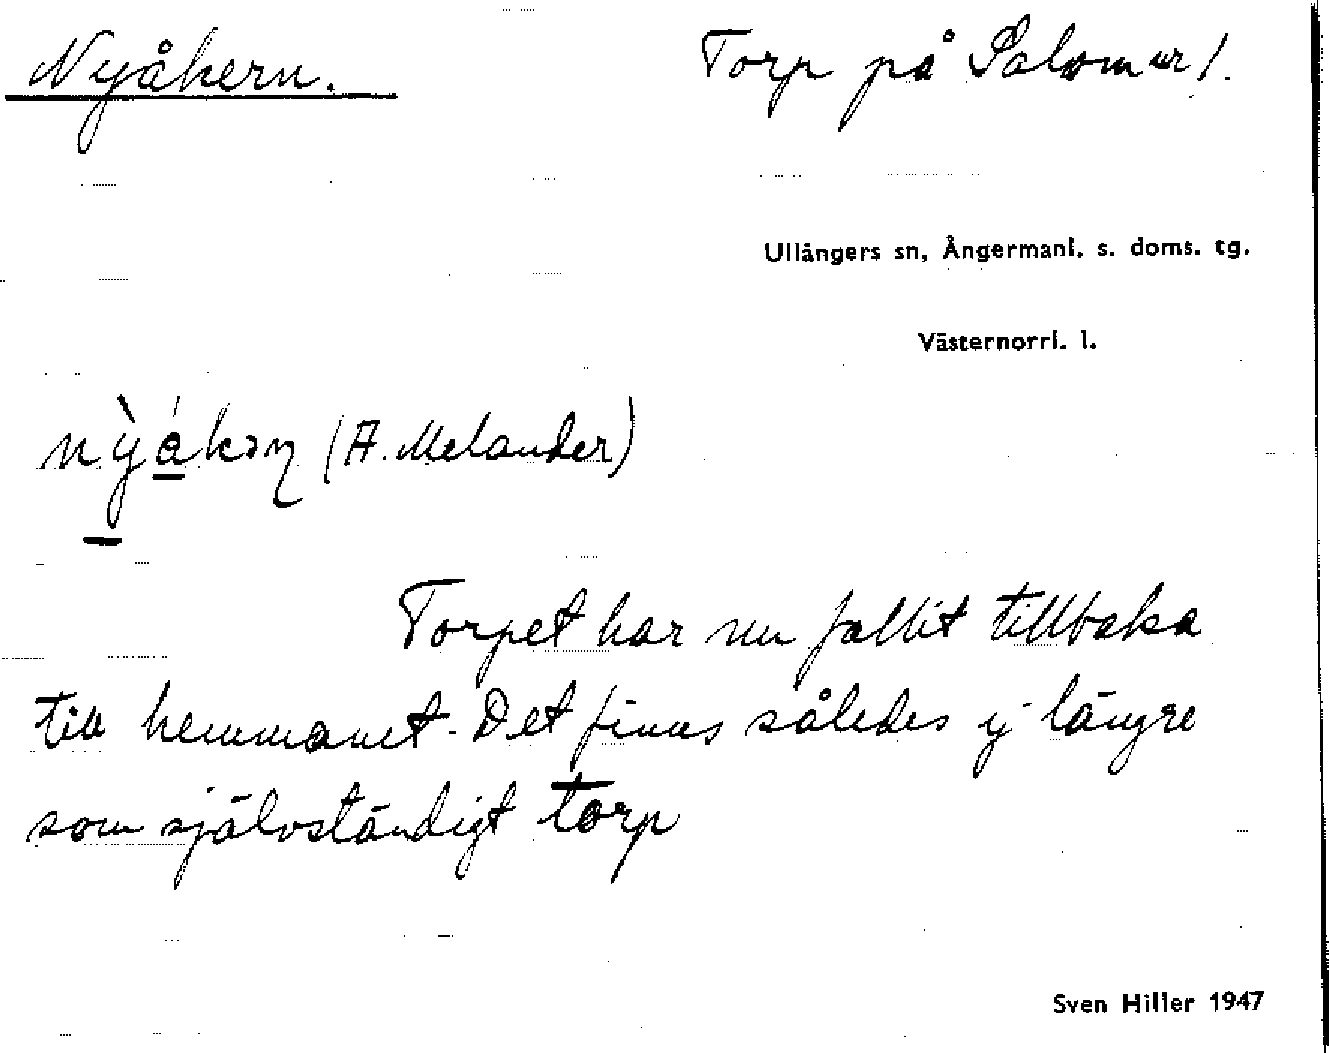 Nyåkern. Torp på Salomur 1.
Ullångers sn, Ångermanl. s. doms. tg.
Västernorrl. l.
(A. Melander)
Torpet har nu fallit tillbaka
till hemmanet. Det finns således ej längre
som självständigt torp
Sven Hiller 1947